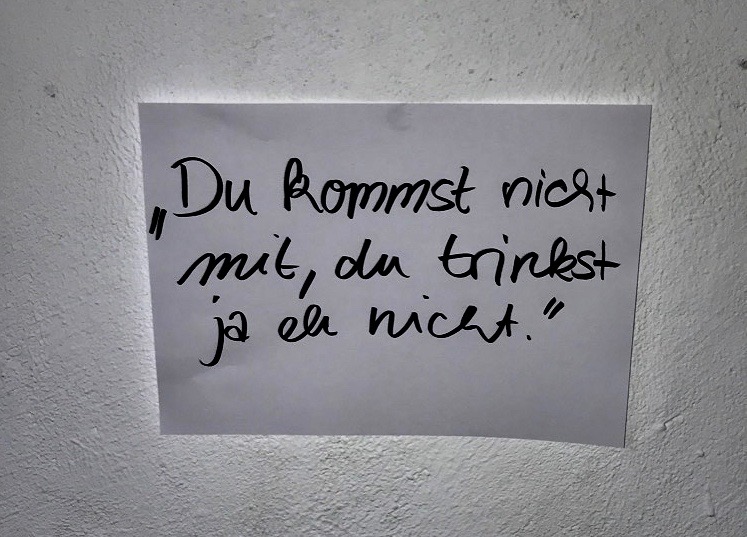 „Du kommst nicht
mit, du trinkst
ja eh nicht.“